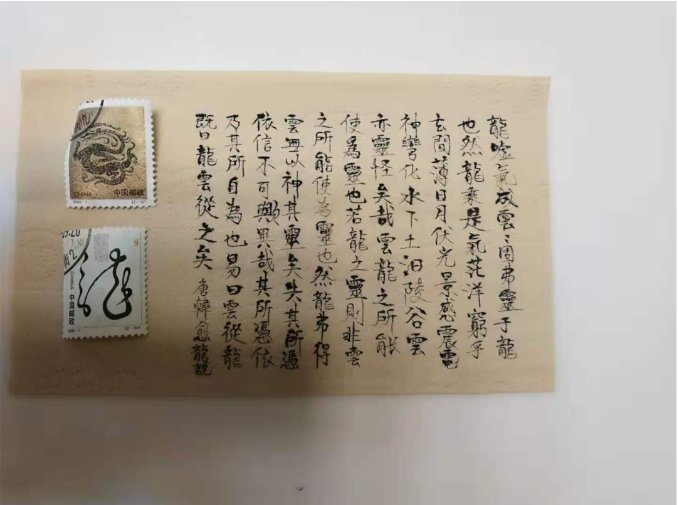 龍噓氣成雲雲固弗靈于龍
也然龍乘是氣茫洋窮乎
玄間薄日月伏光景感震電
神變化水下土汩陵谷雲
亦靈怪矣哉雲龍之所能
使為靈也若龍之靈則非雲
之所能使為靈也然龍弗得
雲無以神其靈矣失其所憑
依信不可歟異哉其所憑依
乃其所自為也易曰雲從龍
既曰龍雲從之矣 唐韓愈龍說
中国邮政
CHINA
中国邮政